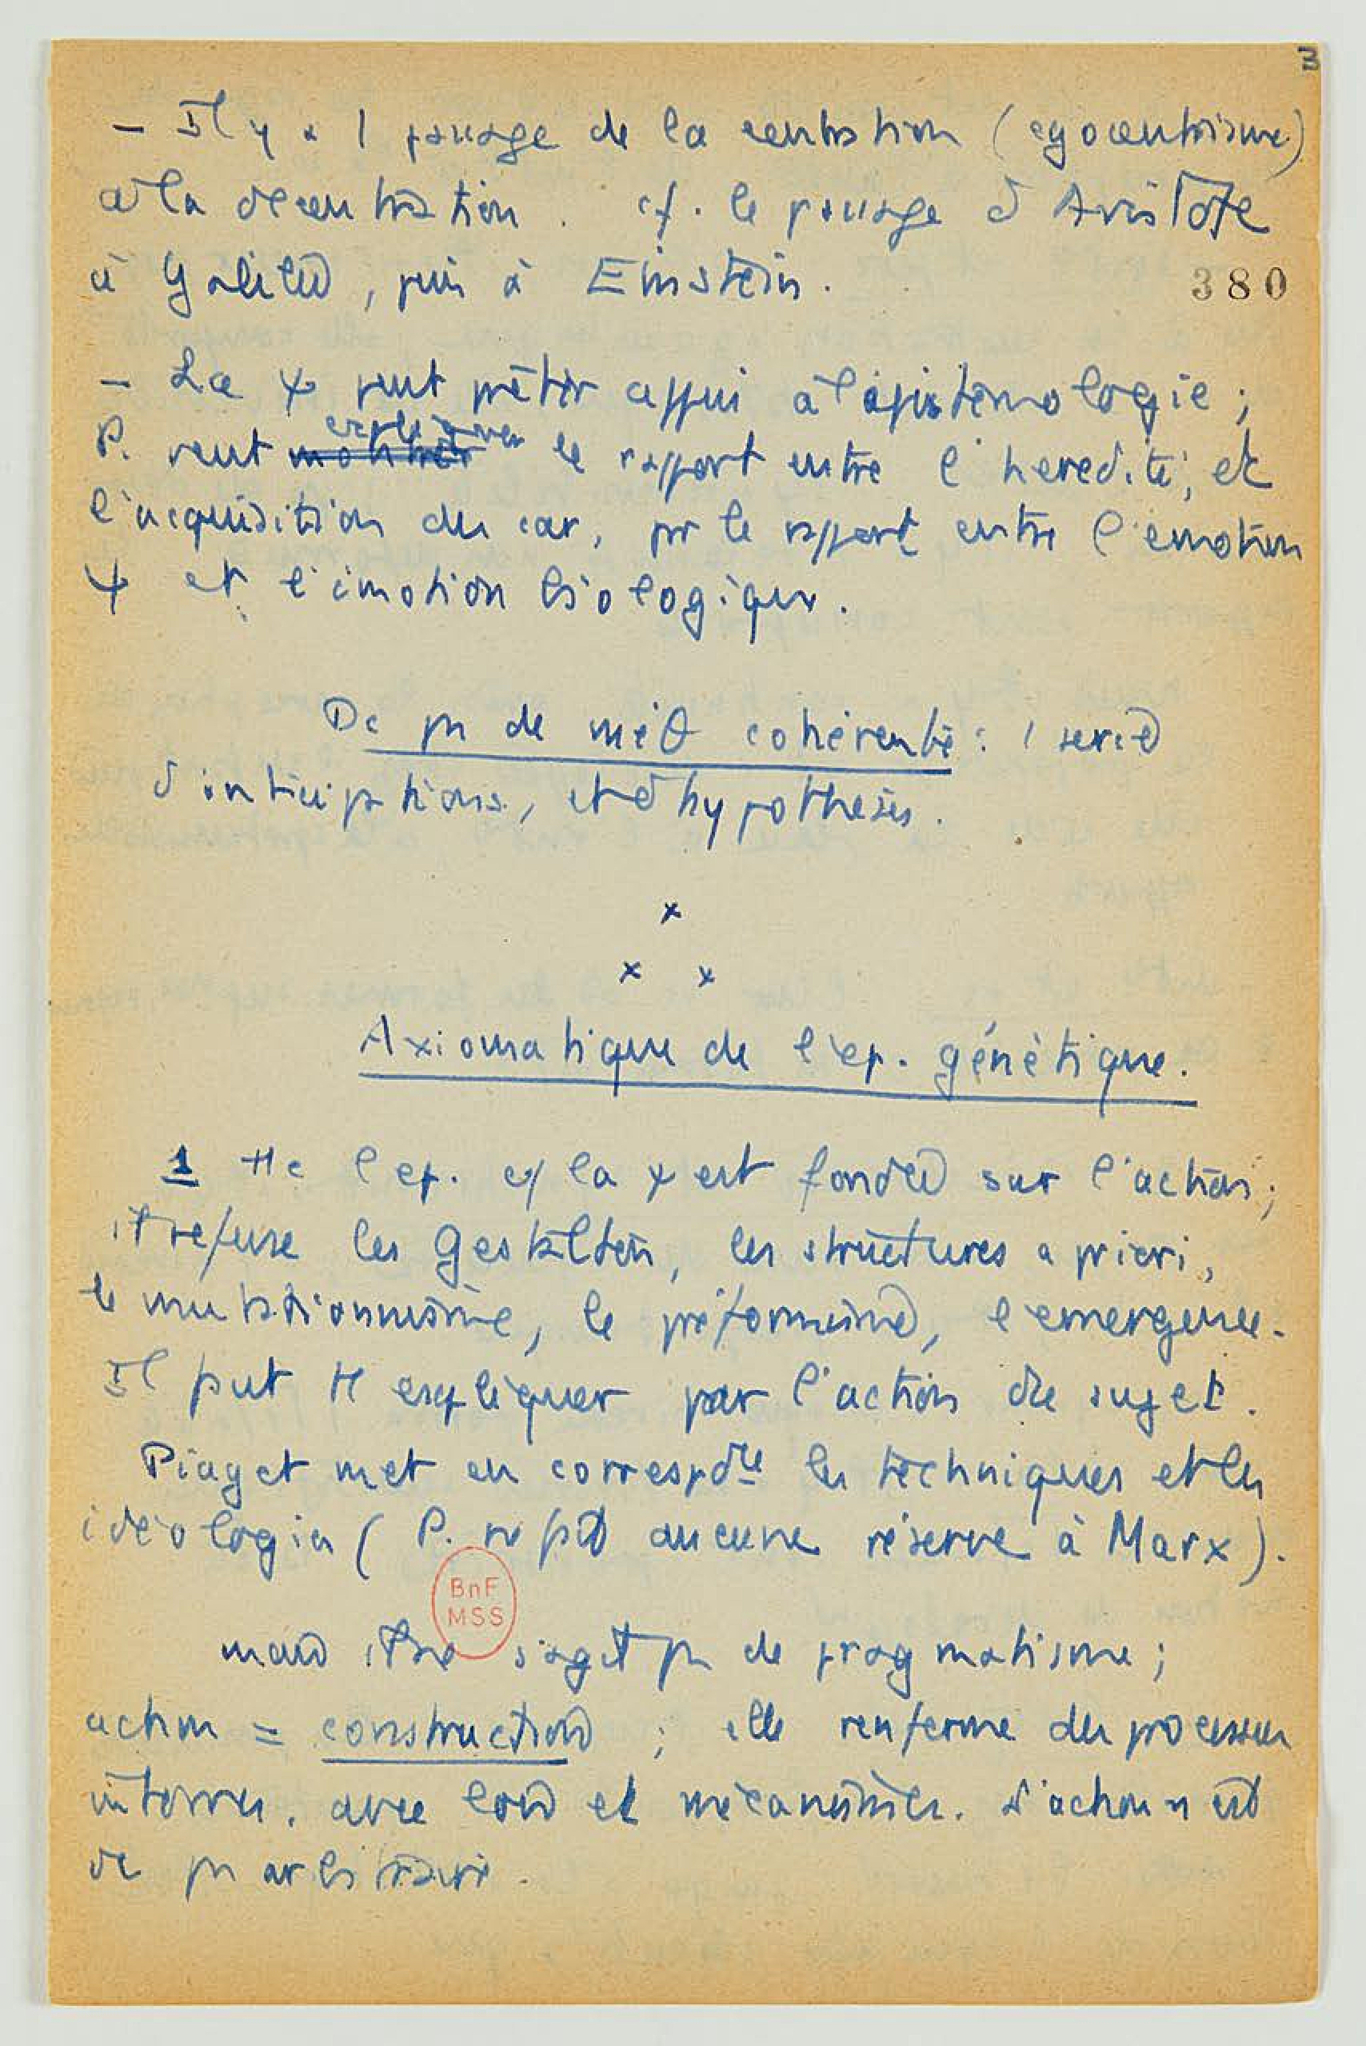 3
– Il y a 1 passage de la centration (egocentrisme)
à la décentration. cf. le passage d'Aristote
à Galilée, puis à Einstein.
380
– La ψ peut prêter appui à l'épistémologie ;
expliquer
P. veut montrer le rapport entre l'hérédité, et
l'acquisition des car., par le rapport entre l'
ψ et l' biologique.
Dc pas de méθ cohérente : 1 série
d'anticipations, et d'hypothèses.
x
x x
Axiomatique de l'ep. génétique.
1 Tte l'ep. cf la ψ est fondée sur l'action ;
il refuse les Gestalten, les structures a priori,
le mutationnisme, le préformisme, l'émergence.
Il peut tt expliquer par l'action du sujet.
Piaget met en correspdce les techniques et les
idéologies ( P. ne fait aucune réserve à Marx ).
BnF
MSS
mais il ne s'agit pas de pragmatisme ;
action = construction ; elle renferme des processus
internes, avec lois et mécanismes. L'action n'est
dc pas arbitraire.